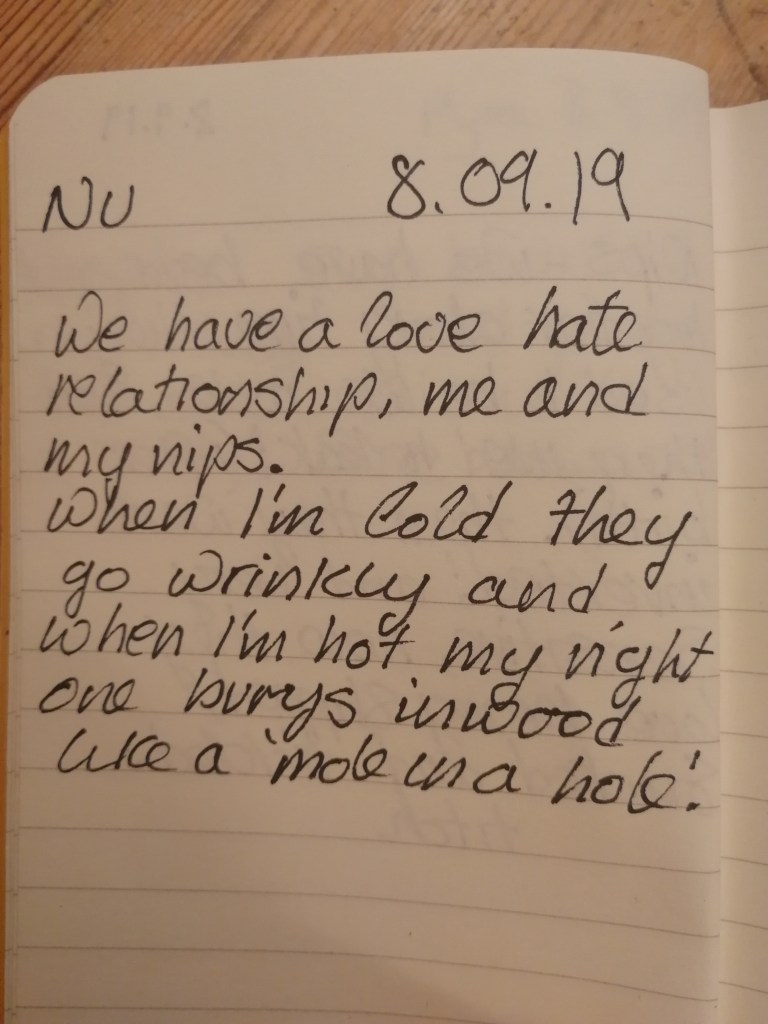 NU 8.09.19
We have a love hate
relationship, me and
my nips.
When I'm cold they
go wrinkly and
when I'm hot my right
one burys inwood
like a 'mole in a hole'.